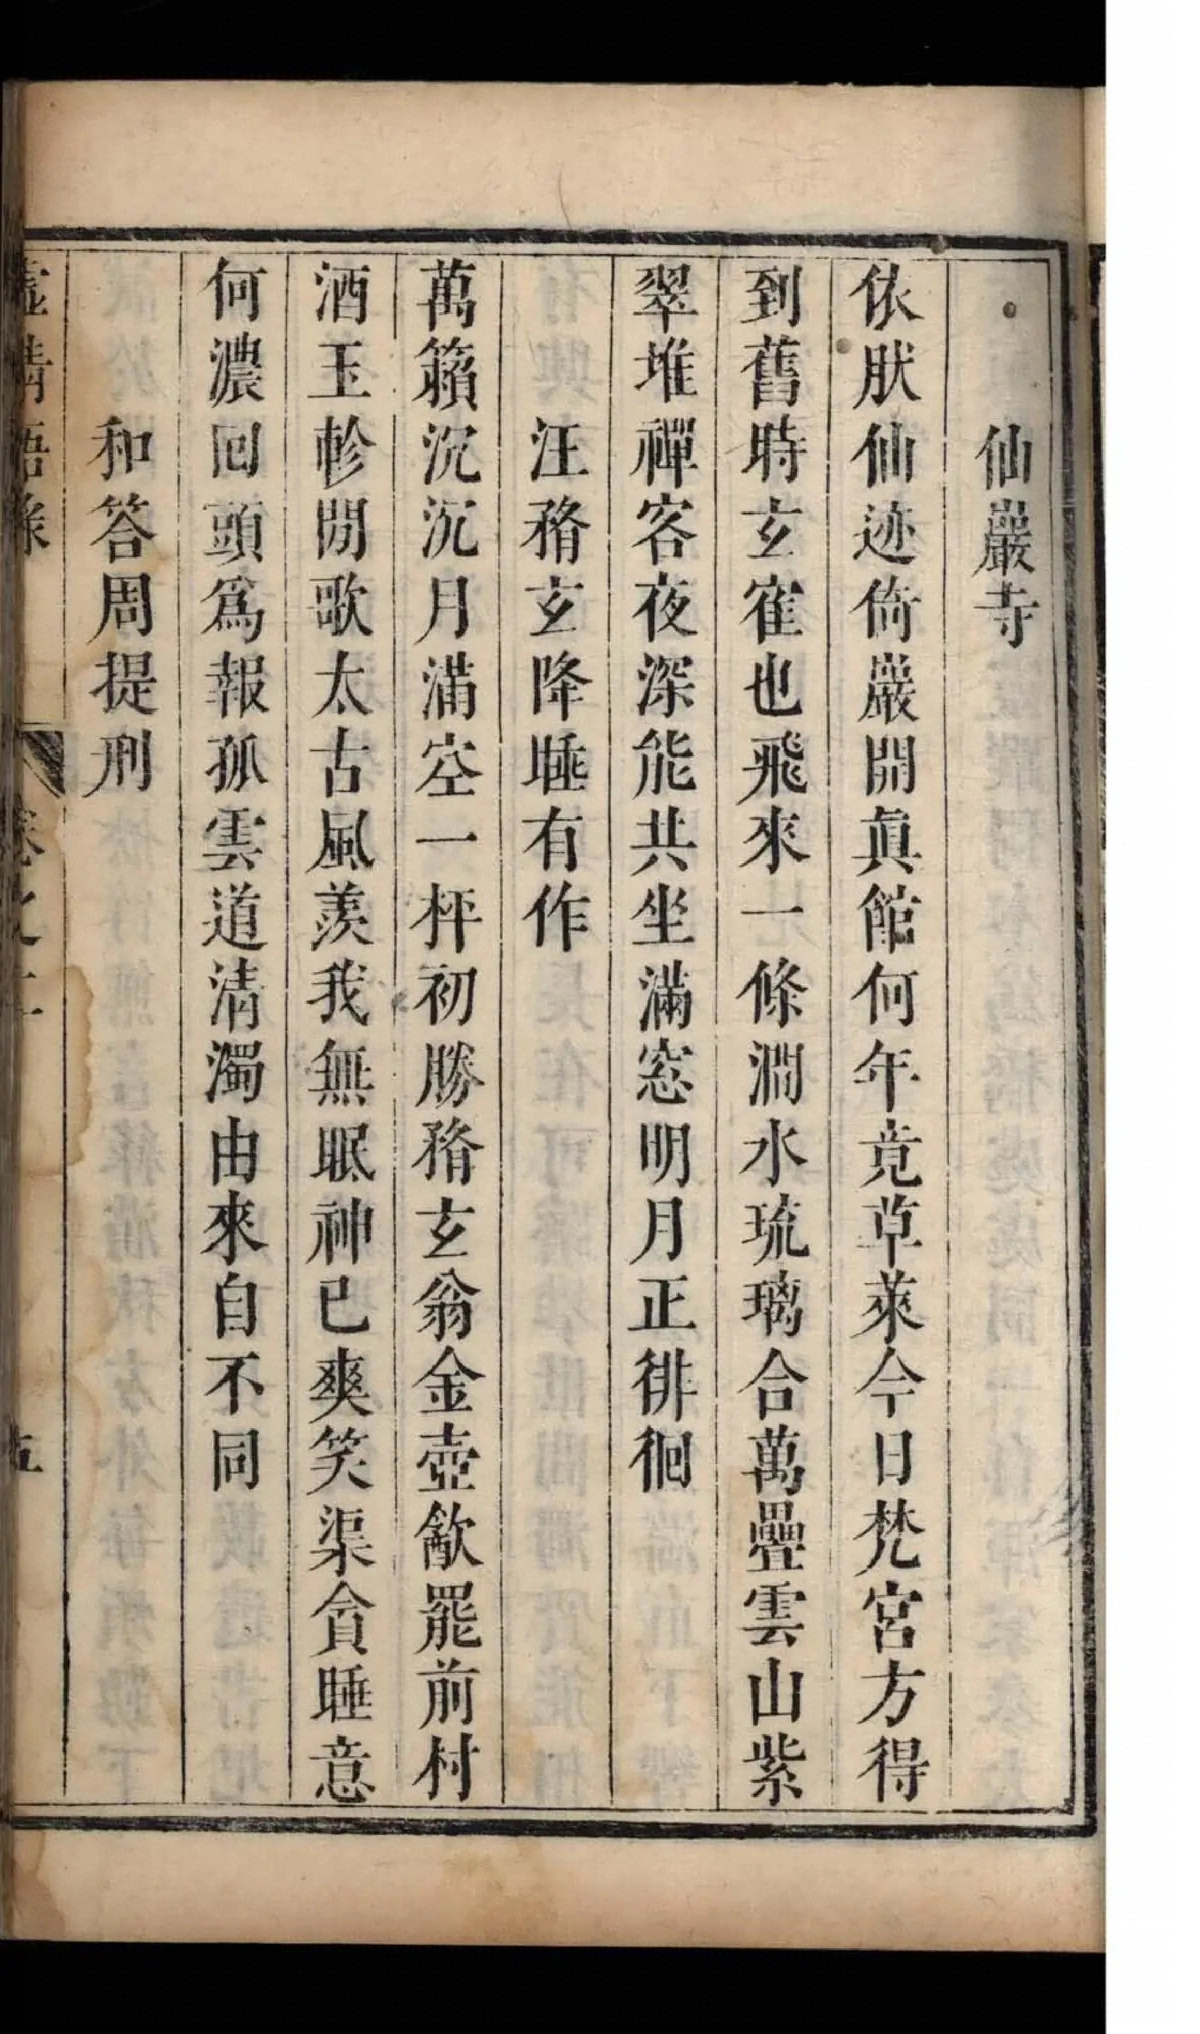 仙巖寺
依肰仙迹倚巖開眞館何年竟草萊今日梵宮方得
到舊時玄寉也飛來一條澗水琉璃合萬疊雲山紫
翠堆禪客夜深能共坐滿窓明月正徘徊
汪務玄降睡有作
萬籟沉沉月滿空一枰初勝務玄翁金壺飲罷前村
酒玉軫閒歌太古風羨我無眠神已爽笑渠貪睡意
何濃回頭爲報孤雲道清濁由來自不同
和答周提刑
卷之二
五